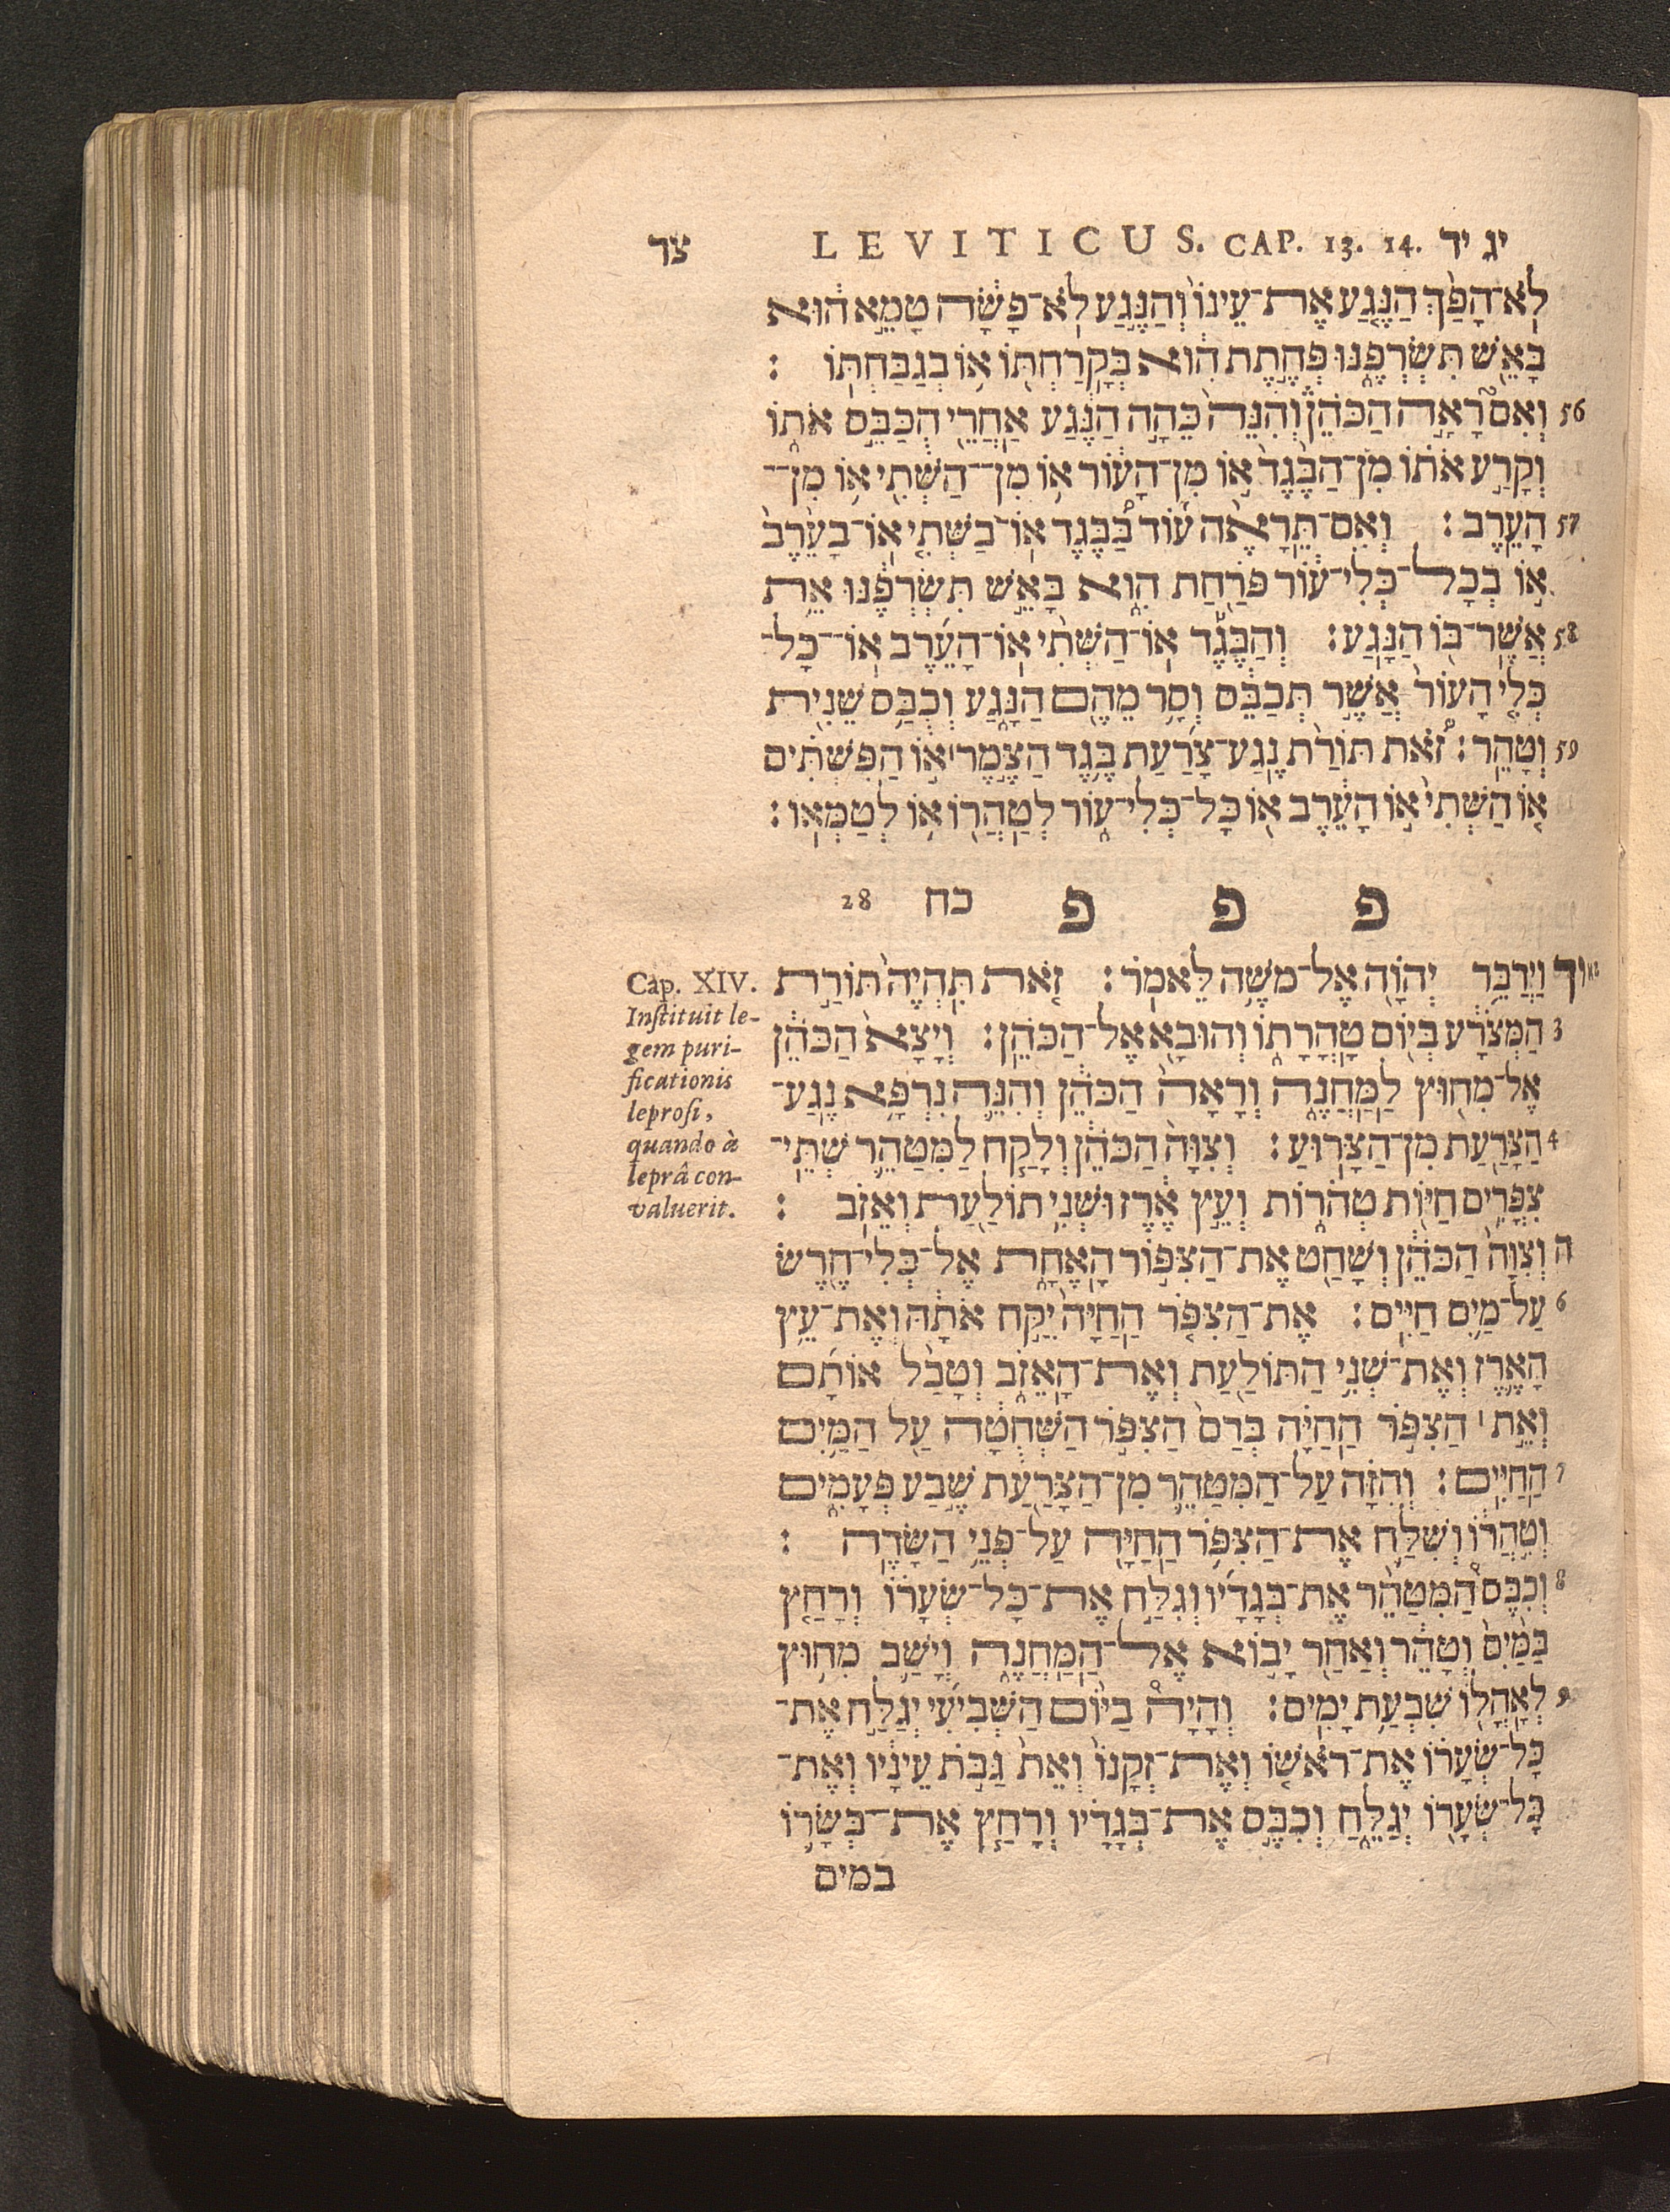 יג יד LEVITICUS. CAP. 13. 14. צד
לֹֽא־הָפַ֨ךְ הַנֶּ֤גַע אֶת־עֵינוֹ֙ וְהַנֶּ֣גַע לֹֽא־פָשָׂ֔ה טָמֵ֣א ה֔וּא
בָּאֵ֖שׁ תִּשְׂרְפֶ֑נּוּ פְּחֶ֣תֶת הִ֔וא בְּקָרַחְתּ֖וֹ א֥וֹ בְגַבַּחְתּֽוֹ :
56 וְאִם֮ רָאָ֣ה הַכֹּהֵן֒ וְהִנֵּה֙ כֵּהָ֣ה הַנֶּ֔גַע אַחֲרֵ֖י הֻכַּבֵּ֣ס אֹת֑וֹ
וְקָרַ֣ע אֹת֗וֹ מִן־הַבֶּ֙גֶד֙ א֣וֹ מִן־הָע֔וֹר א֥וֹ מִן־הַשְּׁתִ֖י א֥וֹ מִן־
57 הָעֵֽרֶב : וְאִם־תֵּרָאֶ֨ה ע֜וֹד בַּ֠בֶּגֶד אֽוֹ־בַשְּׁתִ֤י אֽוֹ־בָעֵ֙רֶב֙
א֣וֹ בְכָל־כְּלִי־ע֔וֹר פֹּרַ֖חַת הִ֑וא בָּאֵ֣שׁ תִּשְׂרְפֶ֔נּוּ אֵ֥ת
58 אֲשֶׁר־בּ֖וֹ הַנָּֽגַע : וְהַבֶּ֡גֶד אֽוֹ־הַשְּׁתִ֨י אֽוֹ־הָעֵ֜רֶב אֽוֹ־כָל־
כְּלִ֤י הָעוֹר֙ אֲשֶׁ֣ר תְּכַבֵּ֔ס וְסָ֥ר מֵהֶ֖ם הַנָּ֑גַע וְכֻבַּ֥ס שֵׁנִ֖ית
59 וְטָהֵֽר : זֹ֠את תּוֹרַ֨ת נֶֽגַע־צָרַ֜עַת בֶּ֥גֶד הַצֶּ֣מֶר ׀ א֣וֹ הַפִּשְׁתִּ֗ים
א֤וֹ הַשְּׁתִי֙ א֣וֹ הָעֵ֔רֶב א֖וֹ כָּל־כְּלִי־ע֑וֹר לְטַהֲר֖וֹ א֥וֹ לְטַמְּאֽוֹ :
פ פ פ כח 28
יד וַיְדַבֵּ֥ר יְהוָ֖ה אֶל־מֹשֶׁ֥ה לֵּאמֹֽר : זֹ֤את תִּֽהְיֶה֙ תּוֹרַ֣ת
3 הַמְּצֹרָ֔ע בְּי֖וֹם טָהֳרָת֑וֹ וְהוּבָ֖א אֶל־הַכֹּהֵֽן : וְיָצָא֙ הַכֹּהֵ֔ן
אֶל־מִח֖וּץ לַֽמַּחֲנֶ֑ה וְרָאָה֙ הַכֹּהֵ֔ן וְהִנֵּ֛ה נִרְפָּ֥א נֶֽגַע־
4 הַצָּרַ֖עַת מִן־הַצָּרֽוּעַ : וְצִוָּה֙ הַכֹּהֵ֔ן וְלָקַ֧ח לַמִּטַּהֵ֛ר שְׁתֵּֽי־
צִפֳּרִ֥ים חַיּ֖וֹת טְהֹר֑וֹת וְעֵ֣ץ אֶ֔רֶז וּשְׁנִ֥י תוֹלַ֖עַת וְאֵזֹֽב :
ה וְצִוָּה֙ הַכֹּהֵ֔ן וְשָׁחַ֖ט אֶת־הַצִּפּ֣וֹר הָאֶחָ֑ת אֶל־כְּלִי־חֶ֖רֶשׂ
6 עַל־מַ֥יִם חַיִּֽים : אֶת־הַצִּפֹּ֤ר הַֽחַיָּה֙ יִקַּ֣ח אֹתָ֔הּ וְאֶת־עֵ֥ץ
הָאֶ֛רֶז וְאֶת־שְׁנִ֥י הַתּוֹלַ֖עַת וְאֶת־הָאֵזֹ֑ב וְטָבַ֨ל אוֹתָ֜ם
וְאֵ֣ת ׀ הַצִּפֹּ֣ר הַֽחַיָּ֗ה בְּדַם֙ הַצִּפֹּ֣ר הַשְּׁחֻטָ֔ה עַ֖ל הַמַּ֥יִם
7 הַֽחַיִּֽים : וְהִזָּ֗ה עַ֧ל־הַמִּטַּהֵ֛ר מִן־הַצָּרַ֖עַת שֶׁ֣בַע פְּעָמִ֑ים
וְטִ֣הֲר֔וֹ וְשִׁלַּ֛ח אֶת־הַצִּפֹּ֥ר הַֽחַיָּ֖ה עַל־פְּנֵ֥י הַשָּׂדֶֽה :
8 וְכִבֶּס֩ הַמִּטַּהֵ֨ר אֶת־בְּגָדָ֜יו וְגִלַּ֣ח אֶת־כָּל־שְׂעָר֗וֹ וְרָחַ֤ץ
בַּמַּ֙יִם֙ וְטָהֵ֔ר וְאַחַ֖ר יָב֣וֹא אֶל־הַֽמַּחֲנֶ֑ה וְיָשַׁ֛ב מִח֥וּץ
9 לְאָהֳל֖וֹ שִׁבְעַ֥ת יָמִֽים : וְהָיָה֩ בַיּ֨וֹם הַשְּׁבִיעִ֜י יְגַלַּ֣ח אֶת־
כָּל־שְׂעָר֗וֹ אֶת־רֹאשׁ֤וֹ וְאֶת־זְקָנוֹ֙ וְאֵת֙ גַּבֹּ֣ת עֵינָ֔יו וְאֶת־
כָּל־שְׂעָר֖וֹ יְגַלֵּ֑חַ וְכִבֶּ֣ס אֶת־בְּגָדָ֗יו וְרָחַ֧ץ אֶת־בְּשָׂר֛וֹ
במים
Cap. XIV.
Inſtituit le-
gem puri-
ficationis
leproſi,
quando à
leprâ con-
valuerit.